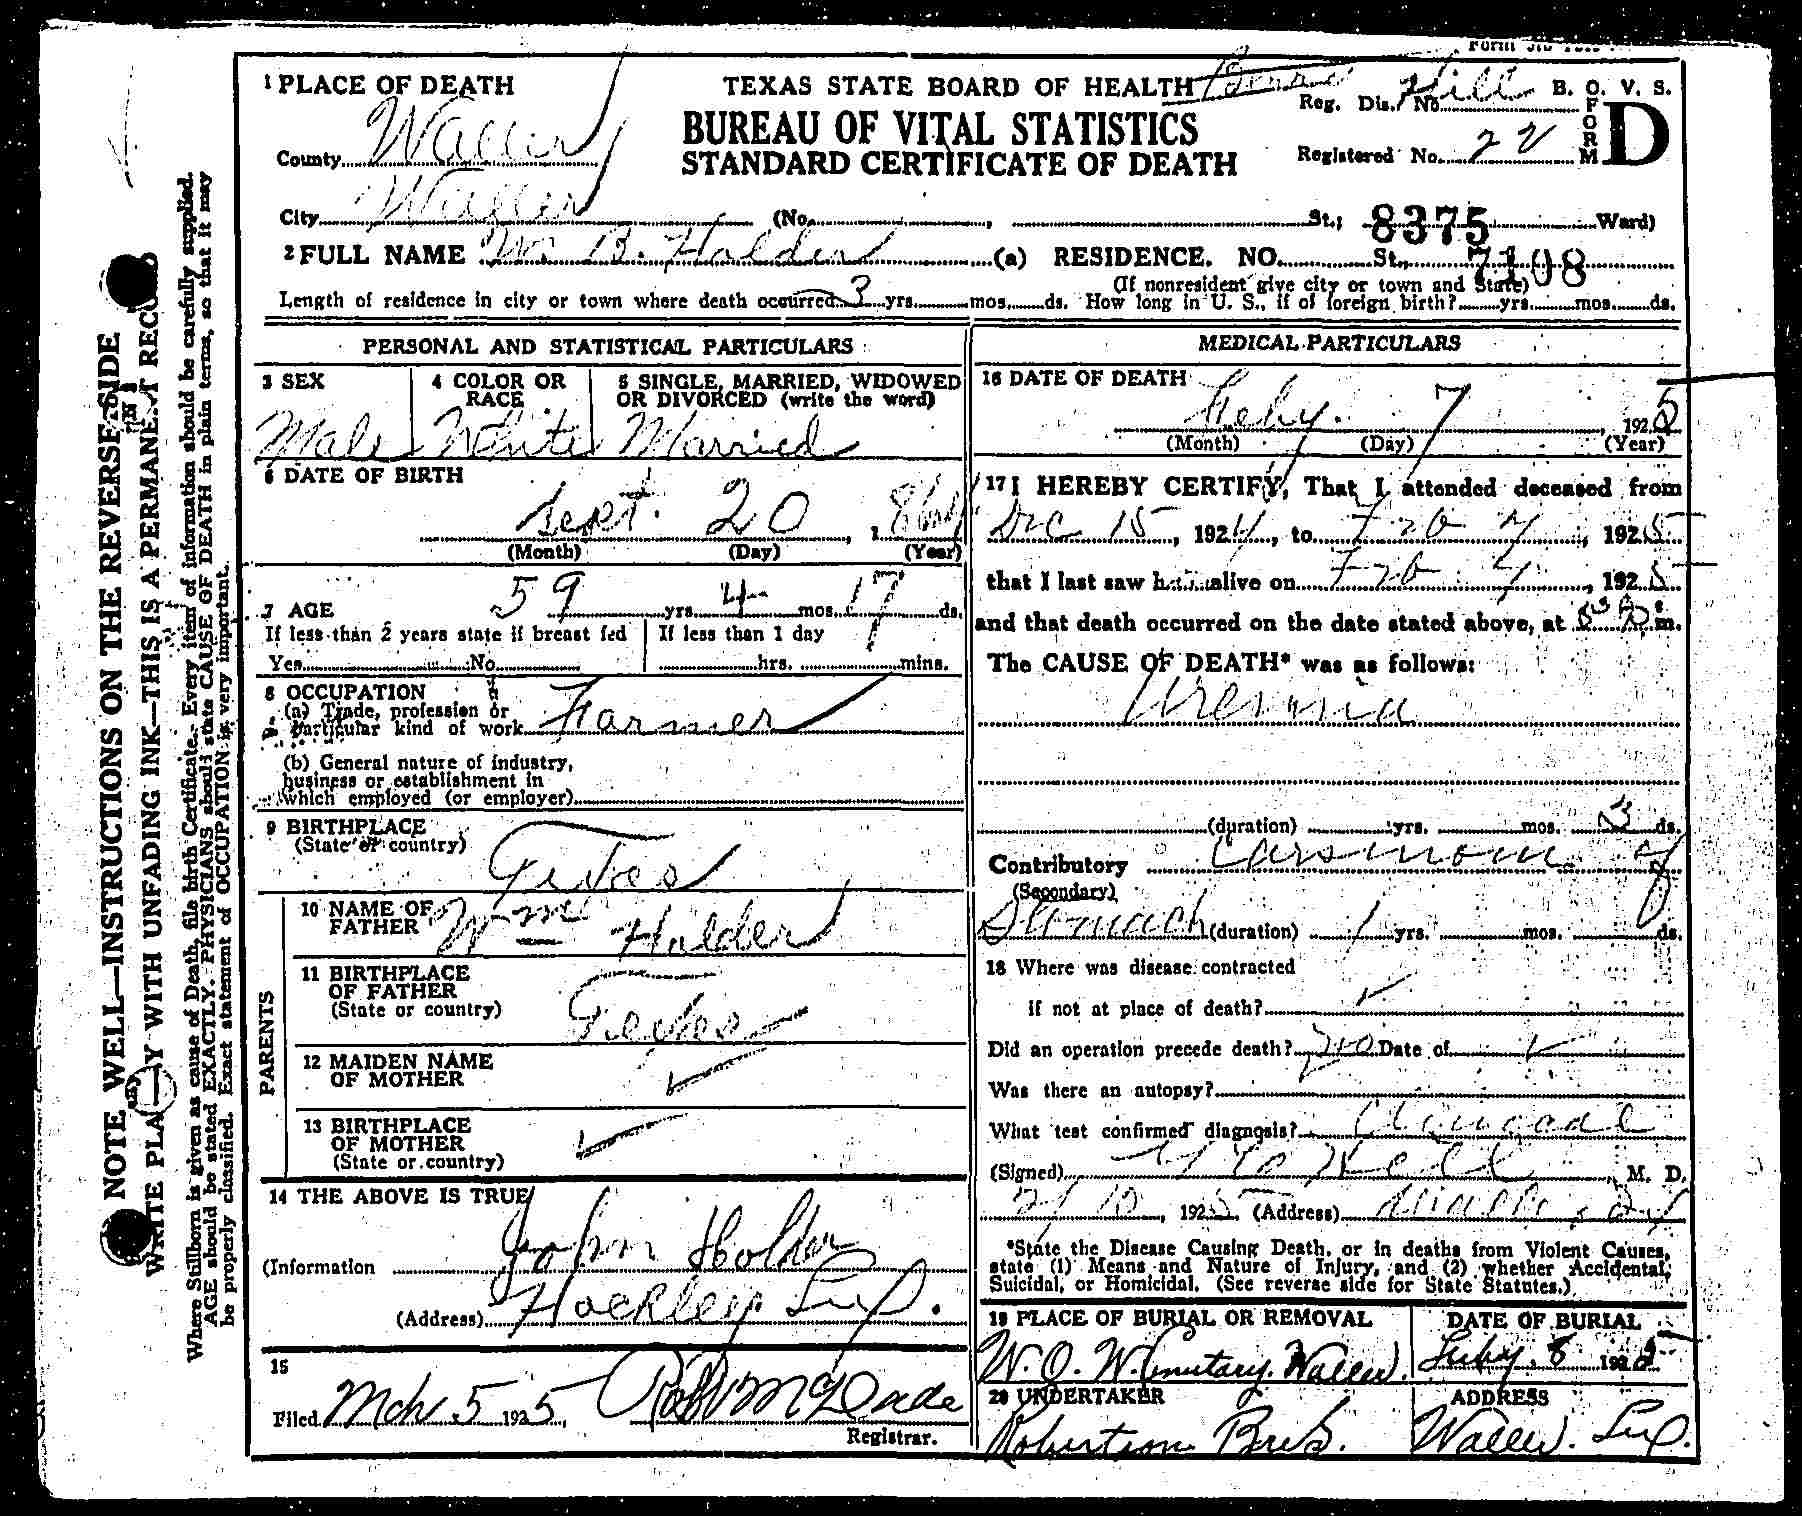 1 PLACE OF DEATH
TEXAS STATE BOARD OF HEALTH
B. O. V. S.
Reg. Dis. No. Hill
FORM D
BUREAU OF VITAL STATISTICS
County Waller
STANDARD CERTIFICATE OF DEATH
Registered No. 22
City Waller (No. , St.; Ward)
8375
2 FULL NAME W. B. Holder (a) RESIDENCE. NO. St.,
7108
(If nonresident give city or town and State)
Length of residence in city or town where death occurred 3 yrs. mos. ds. How long in U. S., if of foreign birth? yrs. mos. ds.
PERSONAL AND STATISTICAL PARTICULARS
3 SEX
Male
4 COLOR OR RACE
White
5 SINGLE, MARRIED, WIDOWED
OR DIVORCED (write the word)
Married
6 DATE OF BIRTH
Sept. 20, 1
(Month) (Day) (Year)
7 AGE 59 yrs. 4 mos. 17 ds.
If less than 2 years state if breast fed
Yes No
If less than 1 day
hrs. mins.
8 OCCUPATION
(a) Trade, profession or
particular kind of work Farmer
(b) General nature of industry,
business or establishment in
which employed (or employer)
9 BIRTHPLACE
(State or country) Texas
PARENTS
10 NAME OF
FATHER Wm Holder
11 BIRTHPLACE
OF FATHER
(State or country) Texas
12 MAIDEN NAME
OF MOTHER ✓
13 BIRTHPLACE
OF MOTHER
(State or country) ✓
14 THE ABOVE IS TRUE
(Information John Holder
(Address) Hockley Tex.
15
Filed Mch 5 1925, McDade
Registrar.
MEDICAL PARTICULARS
16 DATE OF DEATH
Feby. 7, 1925
(Month) (Day) (Year)
17 I HEREBY CERTIFY, That I attended deceased from
Dec 15, 1924, to Feb 7, 1925
that I last saw h alive on Feb 7, 1925
and that death occurred on the date stated above, at m.
The CAUSE OF DEATH* was as follows:
Uremia
(duration) yrs. mos. 3 ds.
Contributory Carsinom of
(Secondary)
Stomach (duration) 1 yrs. mos. ds.
18 Where was disease contracted
if not at place of death? ✓
Did an operation precede death? no Date of ✓
Was there an autopsy?
What test confirmed diagnosis?
(Signed) M. D.
1925. (Address) Waller, Tex
*State the Disease Causing Death, or in deaths from Violent Causes,
state (1) Means and Nature of Injury, and (2) whether Accidental,
Suicidal, or Homicidal. (See reverse side for State Statutes.)
19 PLACE OF BURIAL OR REMOVAL
W. O. W. Cemetary. Waller.
DATE OF BURIAL
Feby. 8 1925
20 UNDERTAKER
Robertson Bros.
ADDRESS
Waller. Tex.
NOTE WELL—INSTRUCTIONS ON THE REVERSE SIDE
WRITE PLAINLY WITH UNFADING INK—THIS IS A PERMANENT RECORD
Where Stillborn is given as cause of Death, file birth Certificate. Every item of information should be carefully supplied.
AGE should be stated EXACTLY. PHYSICIANS should state CAUSE OF DEATH in plain terms, so that it may
be properly classified. Exact statement of OCCUPATION is very important.